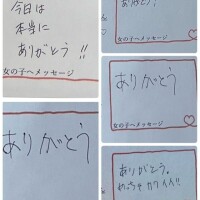 今日は
本当に
ありがとう!!
女の子へメッセージ
ありがとう
ありがとう!
女の子へメッセージ
ありがとう
女の子へメッセージ
ありがとう。
めっちゃカワイイ!!